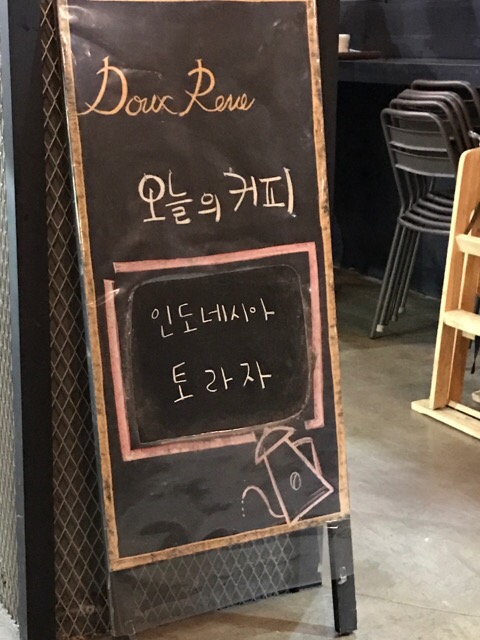 Doux Reve
오늘의 커피
인도네시아
토라자